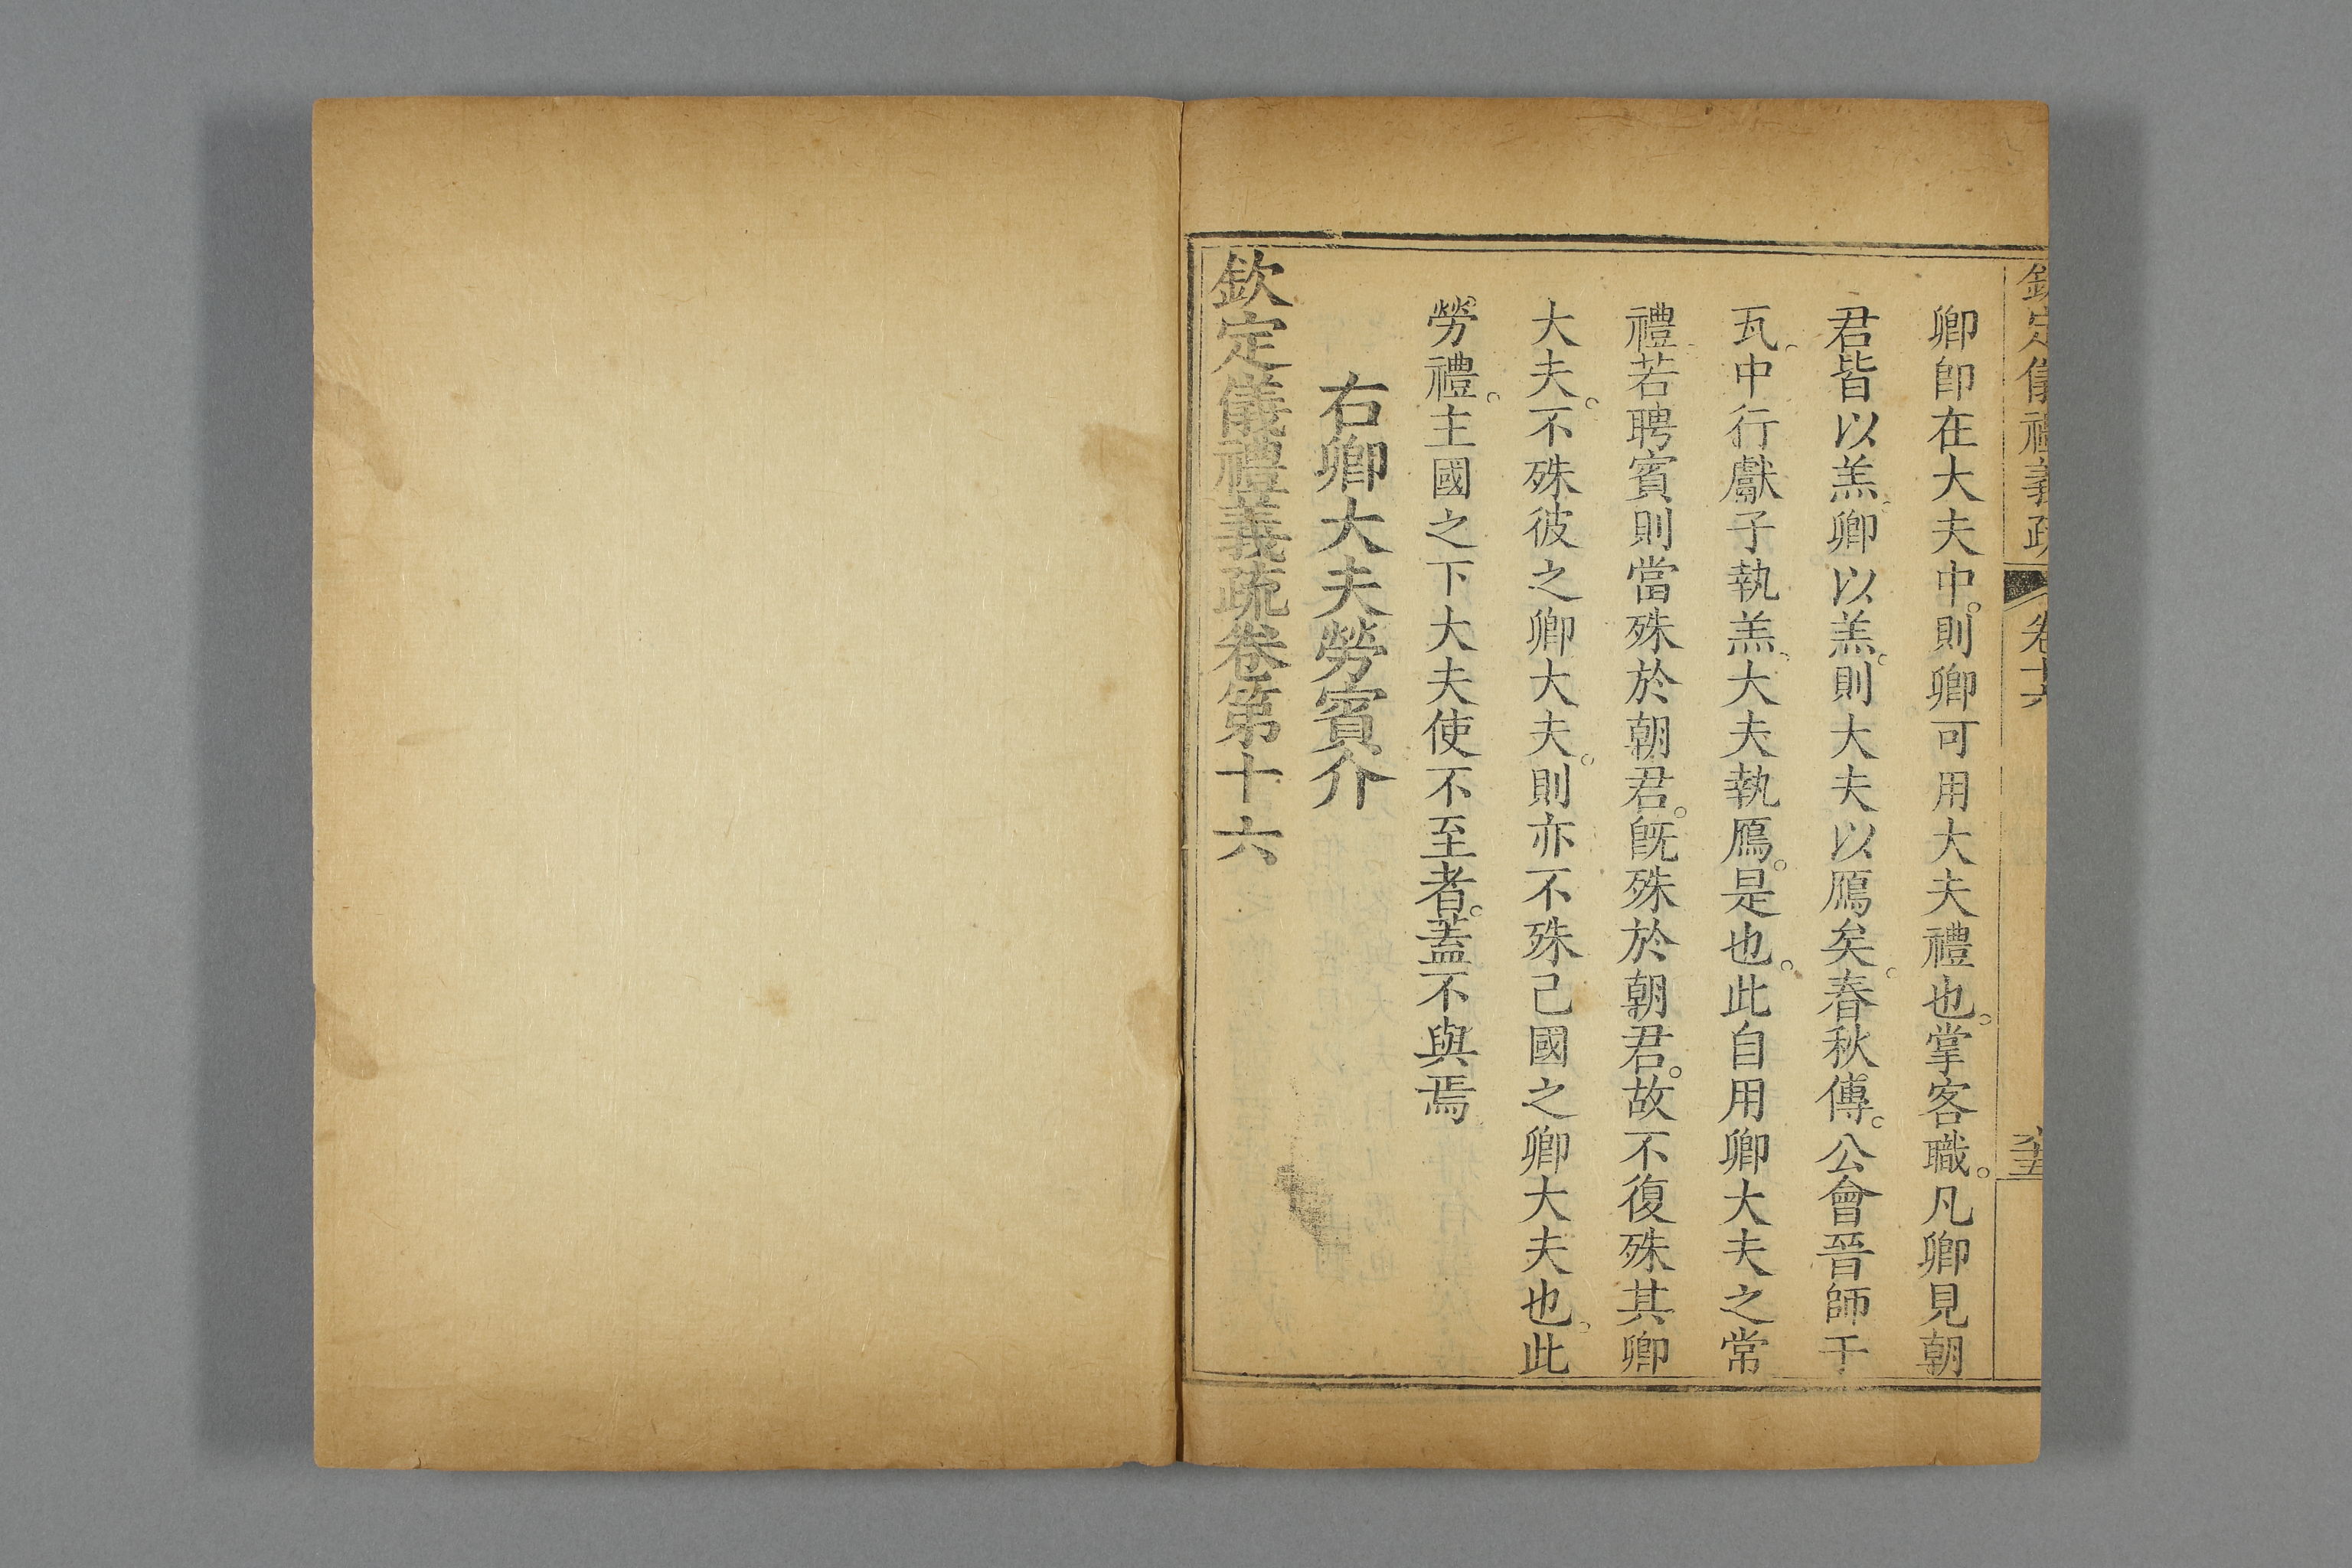 欽定儀禮義疏 卷十六
卿卽在大夫中。則卿可用大夫禮也。掌客職。凡卿見朝
君皆以羔。卿以羔。則大夫以鴈矣。春秋傳。公會晉師于
瓦。中行獻子執羔。大夫執鴈。是也。此自用卿大夫之常
禮。若聘賓則當殊於朝君。旣殊於朝君。故不復殊其卿
大夫。不殊彼之卿大夫。則亦不殊己國之卿大夫也。此
勞禮。主國之下大夫使不至者。蓋不與焉
右卿大夫勞賓介
欽定儀禮義疏卷第十六